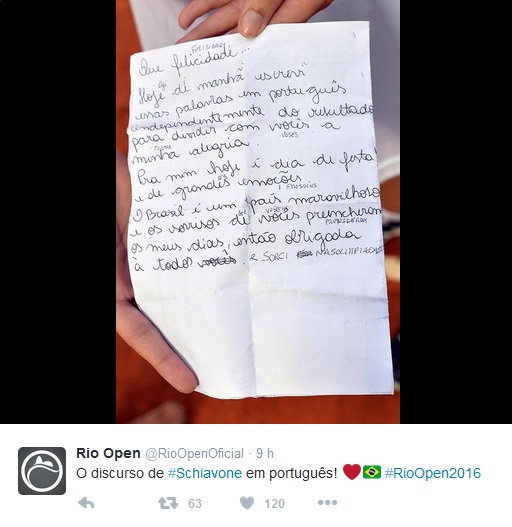 Que felicidade...
Hoje de manhã escrevi
essas palavras em português
independentemente do resultado
para dividir com vocês a
VOSES
minha alegria.
Pra mim hoje é dia de festa
e de grandes emoções.
O Brasil é um país maravilhoso
e os sorrisos de vocês preencheram
os meus dias, então obrigada
à todos e SORCI NASOLIMPIADE
Rio Open @RioOpenOficial · 9 h
O discurso de #Schiavone em português! ❤🇧🇷 #RioOpen2016
63 120